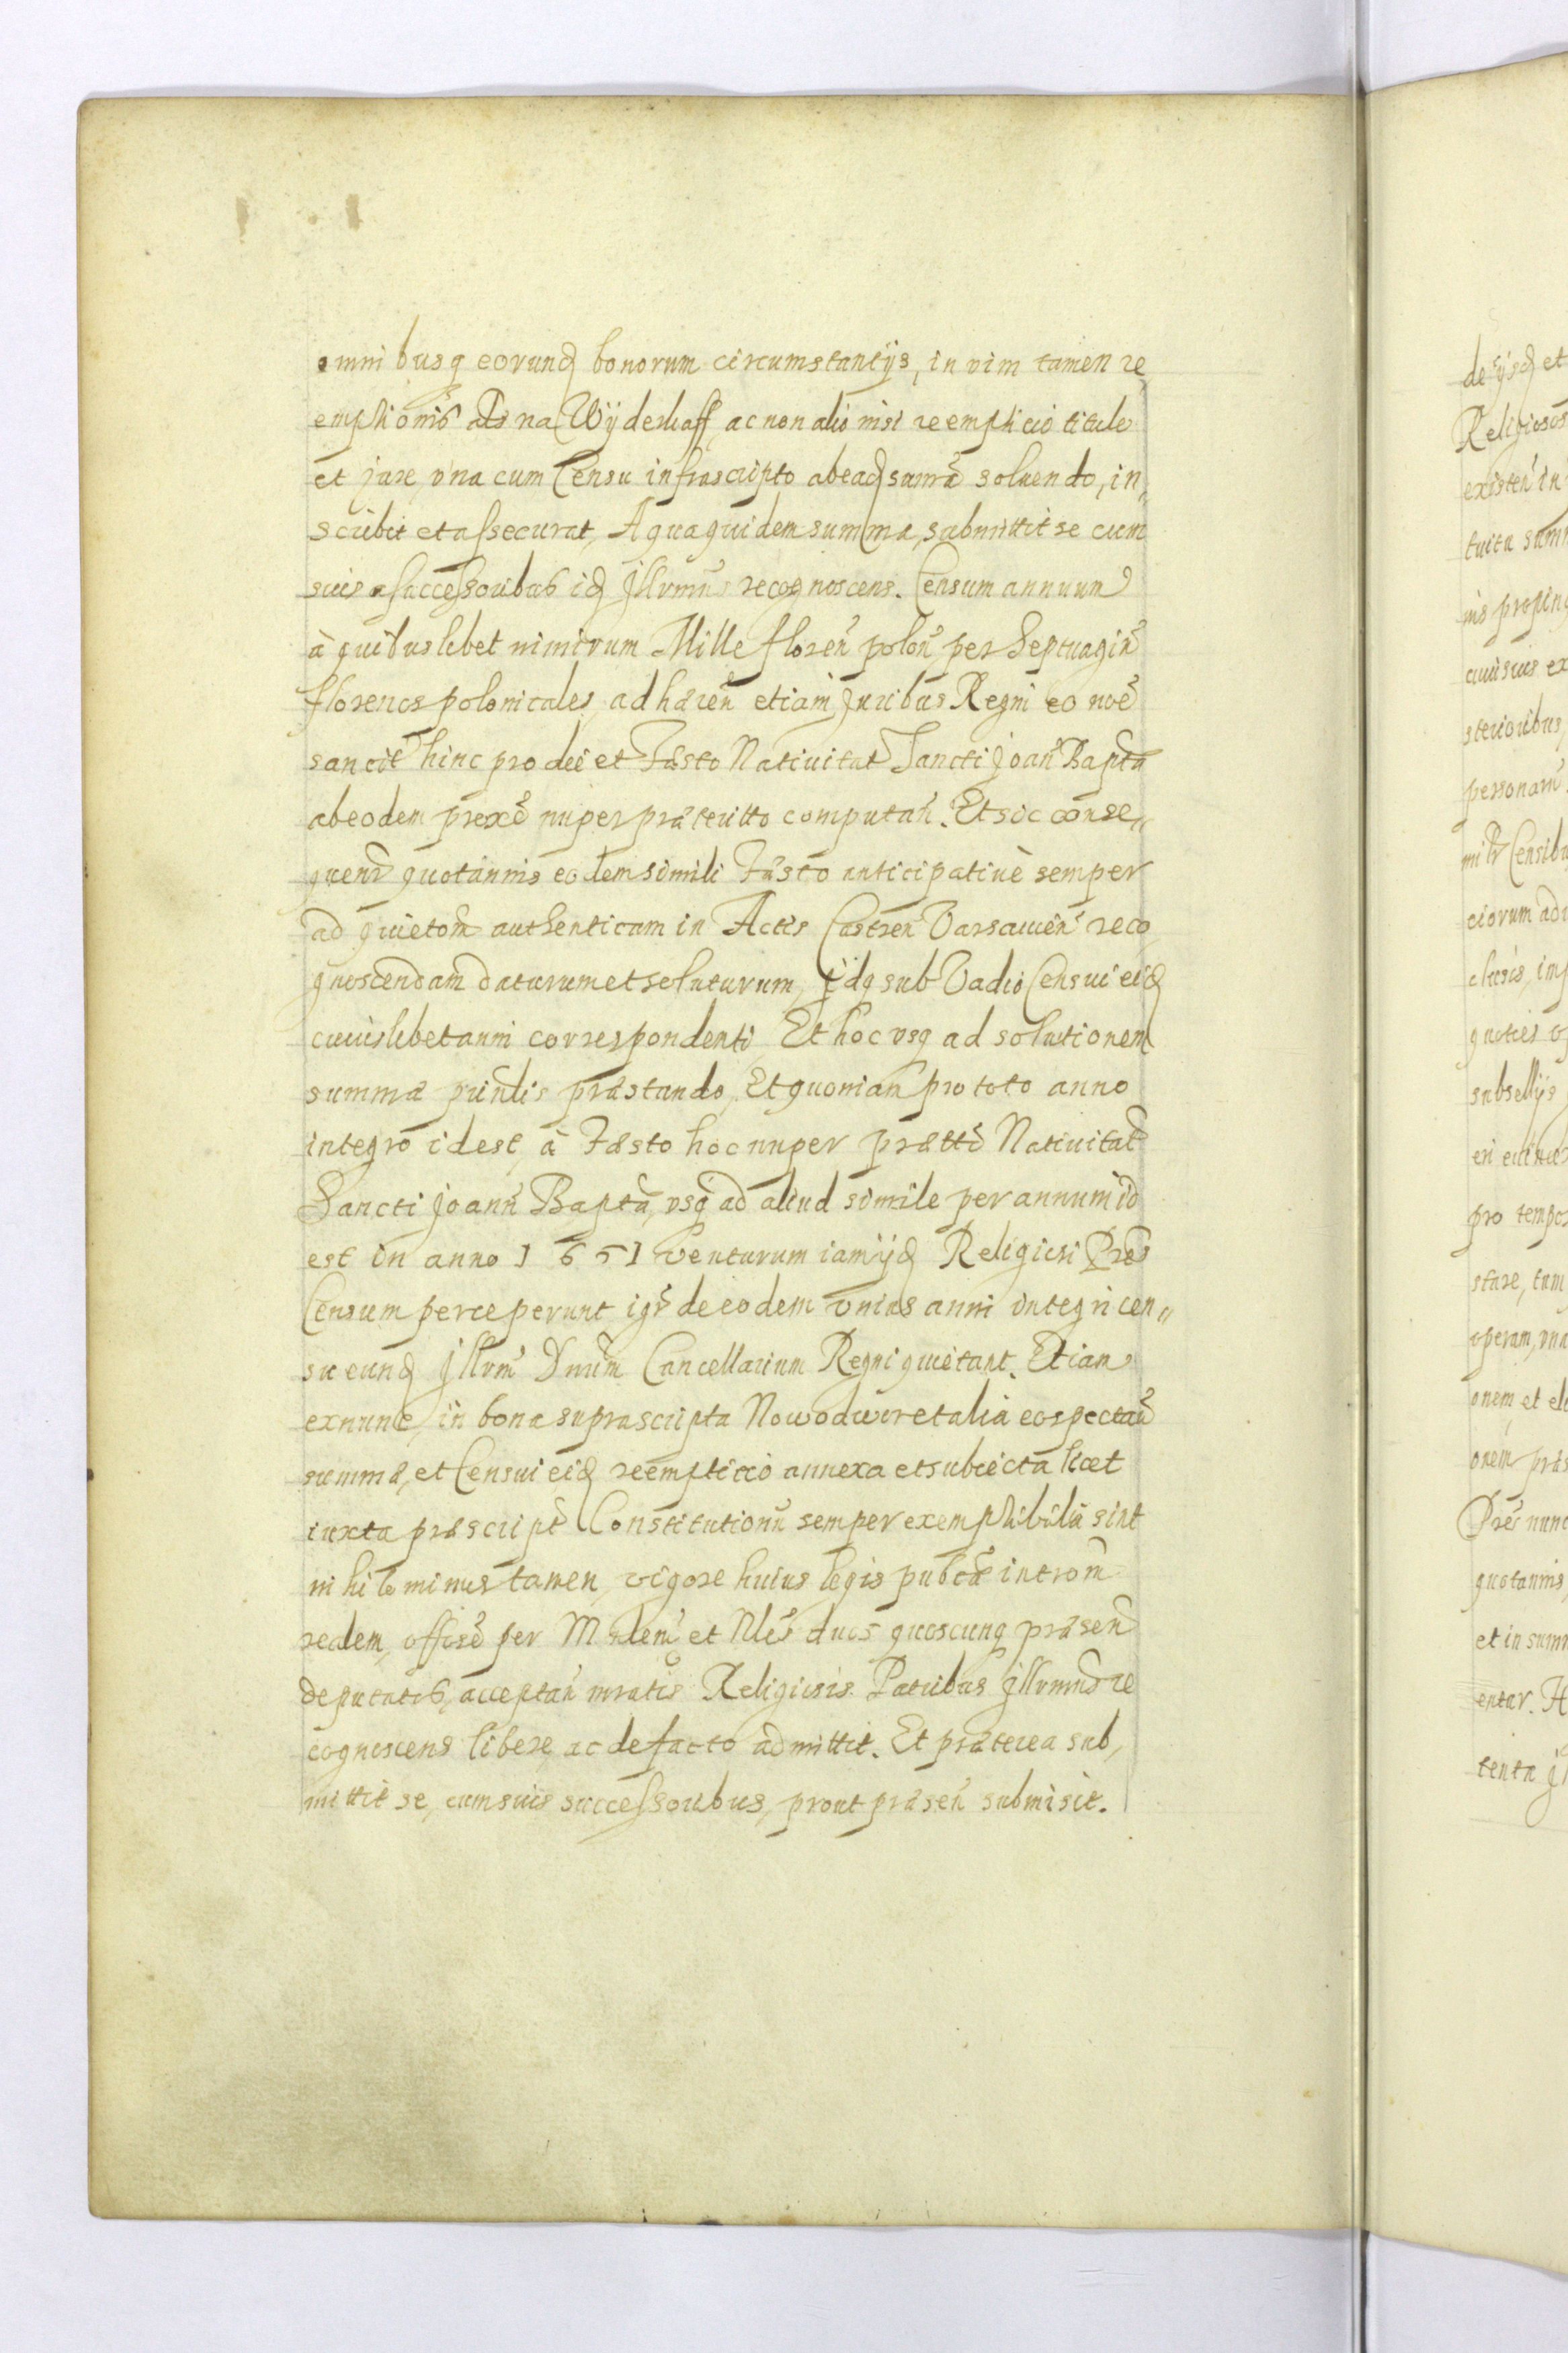 omnibusq eorunq bonorum circumstantÿs, in vim tamen re
emptionis als na Wÿderkaff, ac non alio nisi reempticio titulo
et jure, vna cum Censu infrascripto ab eadq summa soluendo, in„
scribit et assecurat, A qua quidem summa, submittit se cum
suis successoribus idq Jllrmus recognoscens. Censum annuum
à quibuslibet nimirum Mille floren polon, per Septuagin
florenos polonicales, adhæren etiam Juribus Regni eo noe
sancit hinc pro die et Fæsto Natiuitat Sancti Joan Bapta
ab eodem proxe nuper præteritto computan. Et sic conse„
quenr quotannis eodem simili Fæsto anticipatiuè semper
ad quietom authenticam in Actis Castren Varsauien reco
gnoscendam daturum et soluturum, Jdq sub Vadio Censui eidq
cuiuslibet anni correspondenti, Et hoc vsq ad solutionem
summæ prinlis præstando, Et quoniam pro toto anno
integro id est, à Fæsto hoc nuper prætto Natiuitat
Sancti Joann Bapta, vsq ad aliud simile per annum id
est in anno 1651 venturum iam ijdq Religiosi Pres
Censum perceperunt igr de eodem vnius anni integri cen„
su eundq Jllrm Dnum Cancellarium Regni quietant. Etiam
exnunc, in bona suprascripta Nowodwor et alia eo spectan
summæ, et Censui eidq reempticio annexa et subiecta licet
iuxta præscript Constitutionu semper exemptibilia sint
nihilominus tamen, vigore huius legis publcæ introm
realem, offise per Mnlem et Nles duos quoscunq præsen
deputatos, acceptan mratis Religiosis Patribus Jllrmus re
cognoscens libere, ac de facto admittit. Et præterea sub„
mittit se, cum suis successoribus, prout præsen submisit.
de ÿsdq et
Religiosos
existen in
tuita summ
nis propinq
personam
pro tempor
stare, tum
operam, vna
Pres nunc
quotannis
et in summ
entur. H
tenta Jl